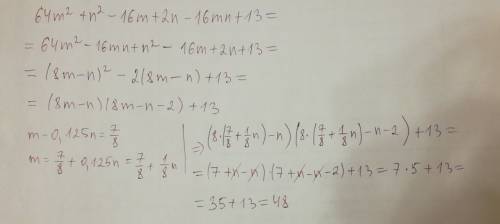 64m² + n² - 16m + 2n - 16mn + 13 =
= 64m² - 16mn + n² - 16m + 2n + 13 =
= (8m-n)² - 2(8m-n) + 13 =
= (8m-n)(8m-n-2) + 13
m - 0,125n = 7/8
m = 7/8 + 0,125n = 7/8 + 1/8 n
⇒ (8·(7/8 + 1/8 n) - n)(8·(7/8 + 1/8 n) - n - 2) + 13 =
= (7 + n - n)·(7 + n - n - 2) + 13 = 7·5 + 13 =
= 35 + 13 = 48